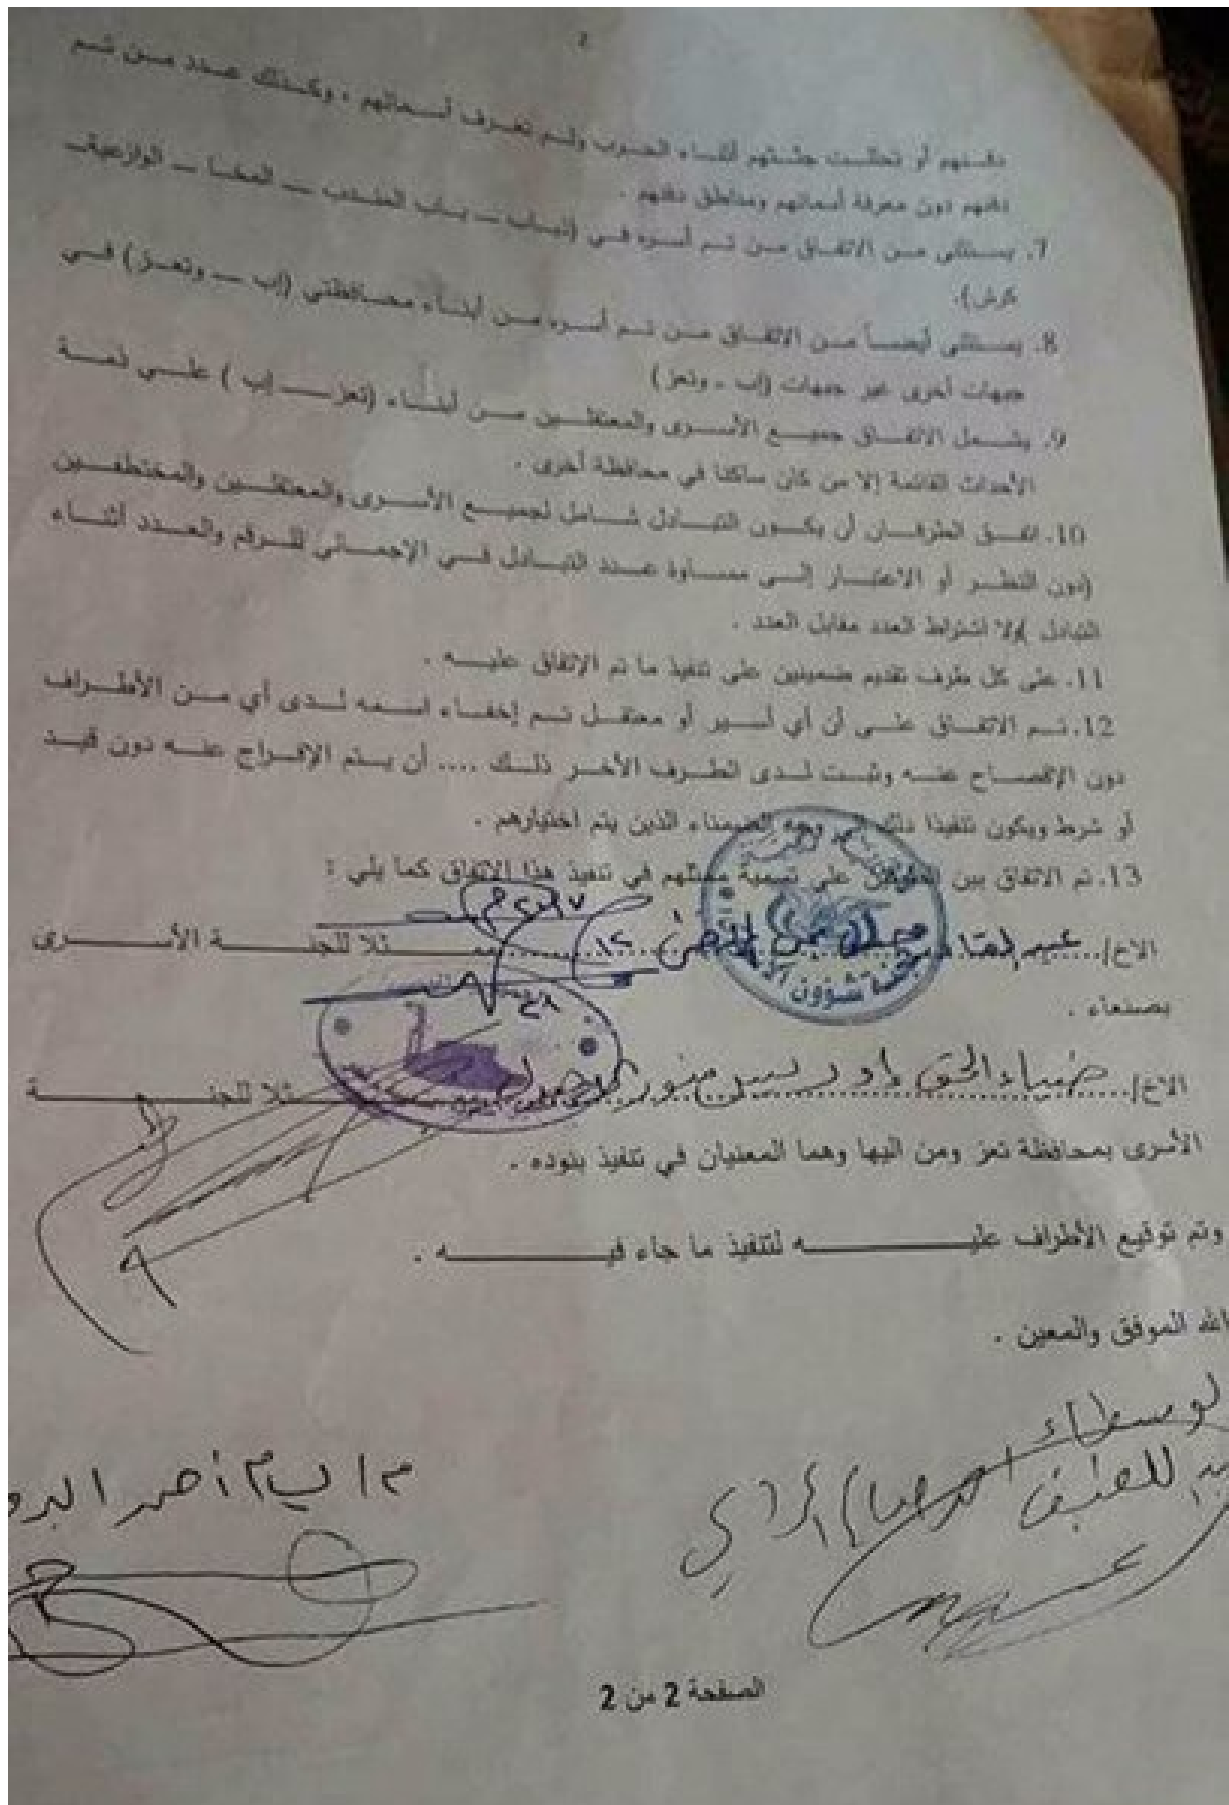 2
دفنهم أو تحللت جثثهم أثناء الحرب ولم تعرف أسمائهم ، وكذلك عدد من تم
دفنهم دون معرفة أسمائهم ومناطق دفنهم .
7. يستثنى من الاتفاق من تم أسره في (ذباب – باب المندب – المخا – الوازعية –
كرش).
8. يستثنى أيضاً من الاتفاق من تم أسره من أبناء محافظتي (إب – وتعز) في
جبهات أخرى غير جبهات (إب - وتعز)
9. يشمل الاتفاق جميع الأسرى والمعتقلين من أبناء (تعز – إب ) على ذمة
الأحداث القائمة إلا من كان ساكنا في محافظة أخرى .
10. اتفق الطرفان أن يكون التبادل شامل لجميع الأسرى والمعتقلين والمختطفين
(دون النظر أو الاعتبار إلى مساوة عدد التبادل في الإجمالي للرقم والعدد أثناء
التبادل )ولا اشتراط العدد مقابل العدد .
11. على كل طرف تقديم ضمينين على تنفيذ ما تم الاتفاق عليه .
12. تم الاتفاق على أن أي أسير أو معتقل تم إخفاء اسمه لدى أي من الأطراف
دون الإفصاح عنه وثبت لدى الطرف الأخر ذلك .... أن يتم الإفراج عنه دون قيد
أو شرط ويكون تنفيذا ذلك في وجه الضمناء الذين يتم اختيارهم .
13. تم الاتفاق بين الطرفين على تسمية ممثلهم في تنفيذ هذا الاتفاق كما يلي :
الاخ/ ممثلا للجنة الأسرى
بصنعاء .
الاخ/ ضياء الحق ممثلا للجنة
الأسرى بمحافظة تعز ومن اليها وهما المعنيان في تنفيذ بنوده .
وتم توقيع الأطراف عليه لتنفيذ ما جاء فيه .
الله الموفق والمعين .
الصفحة 2 من 2